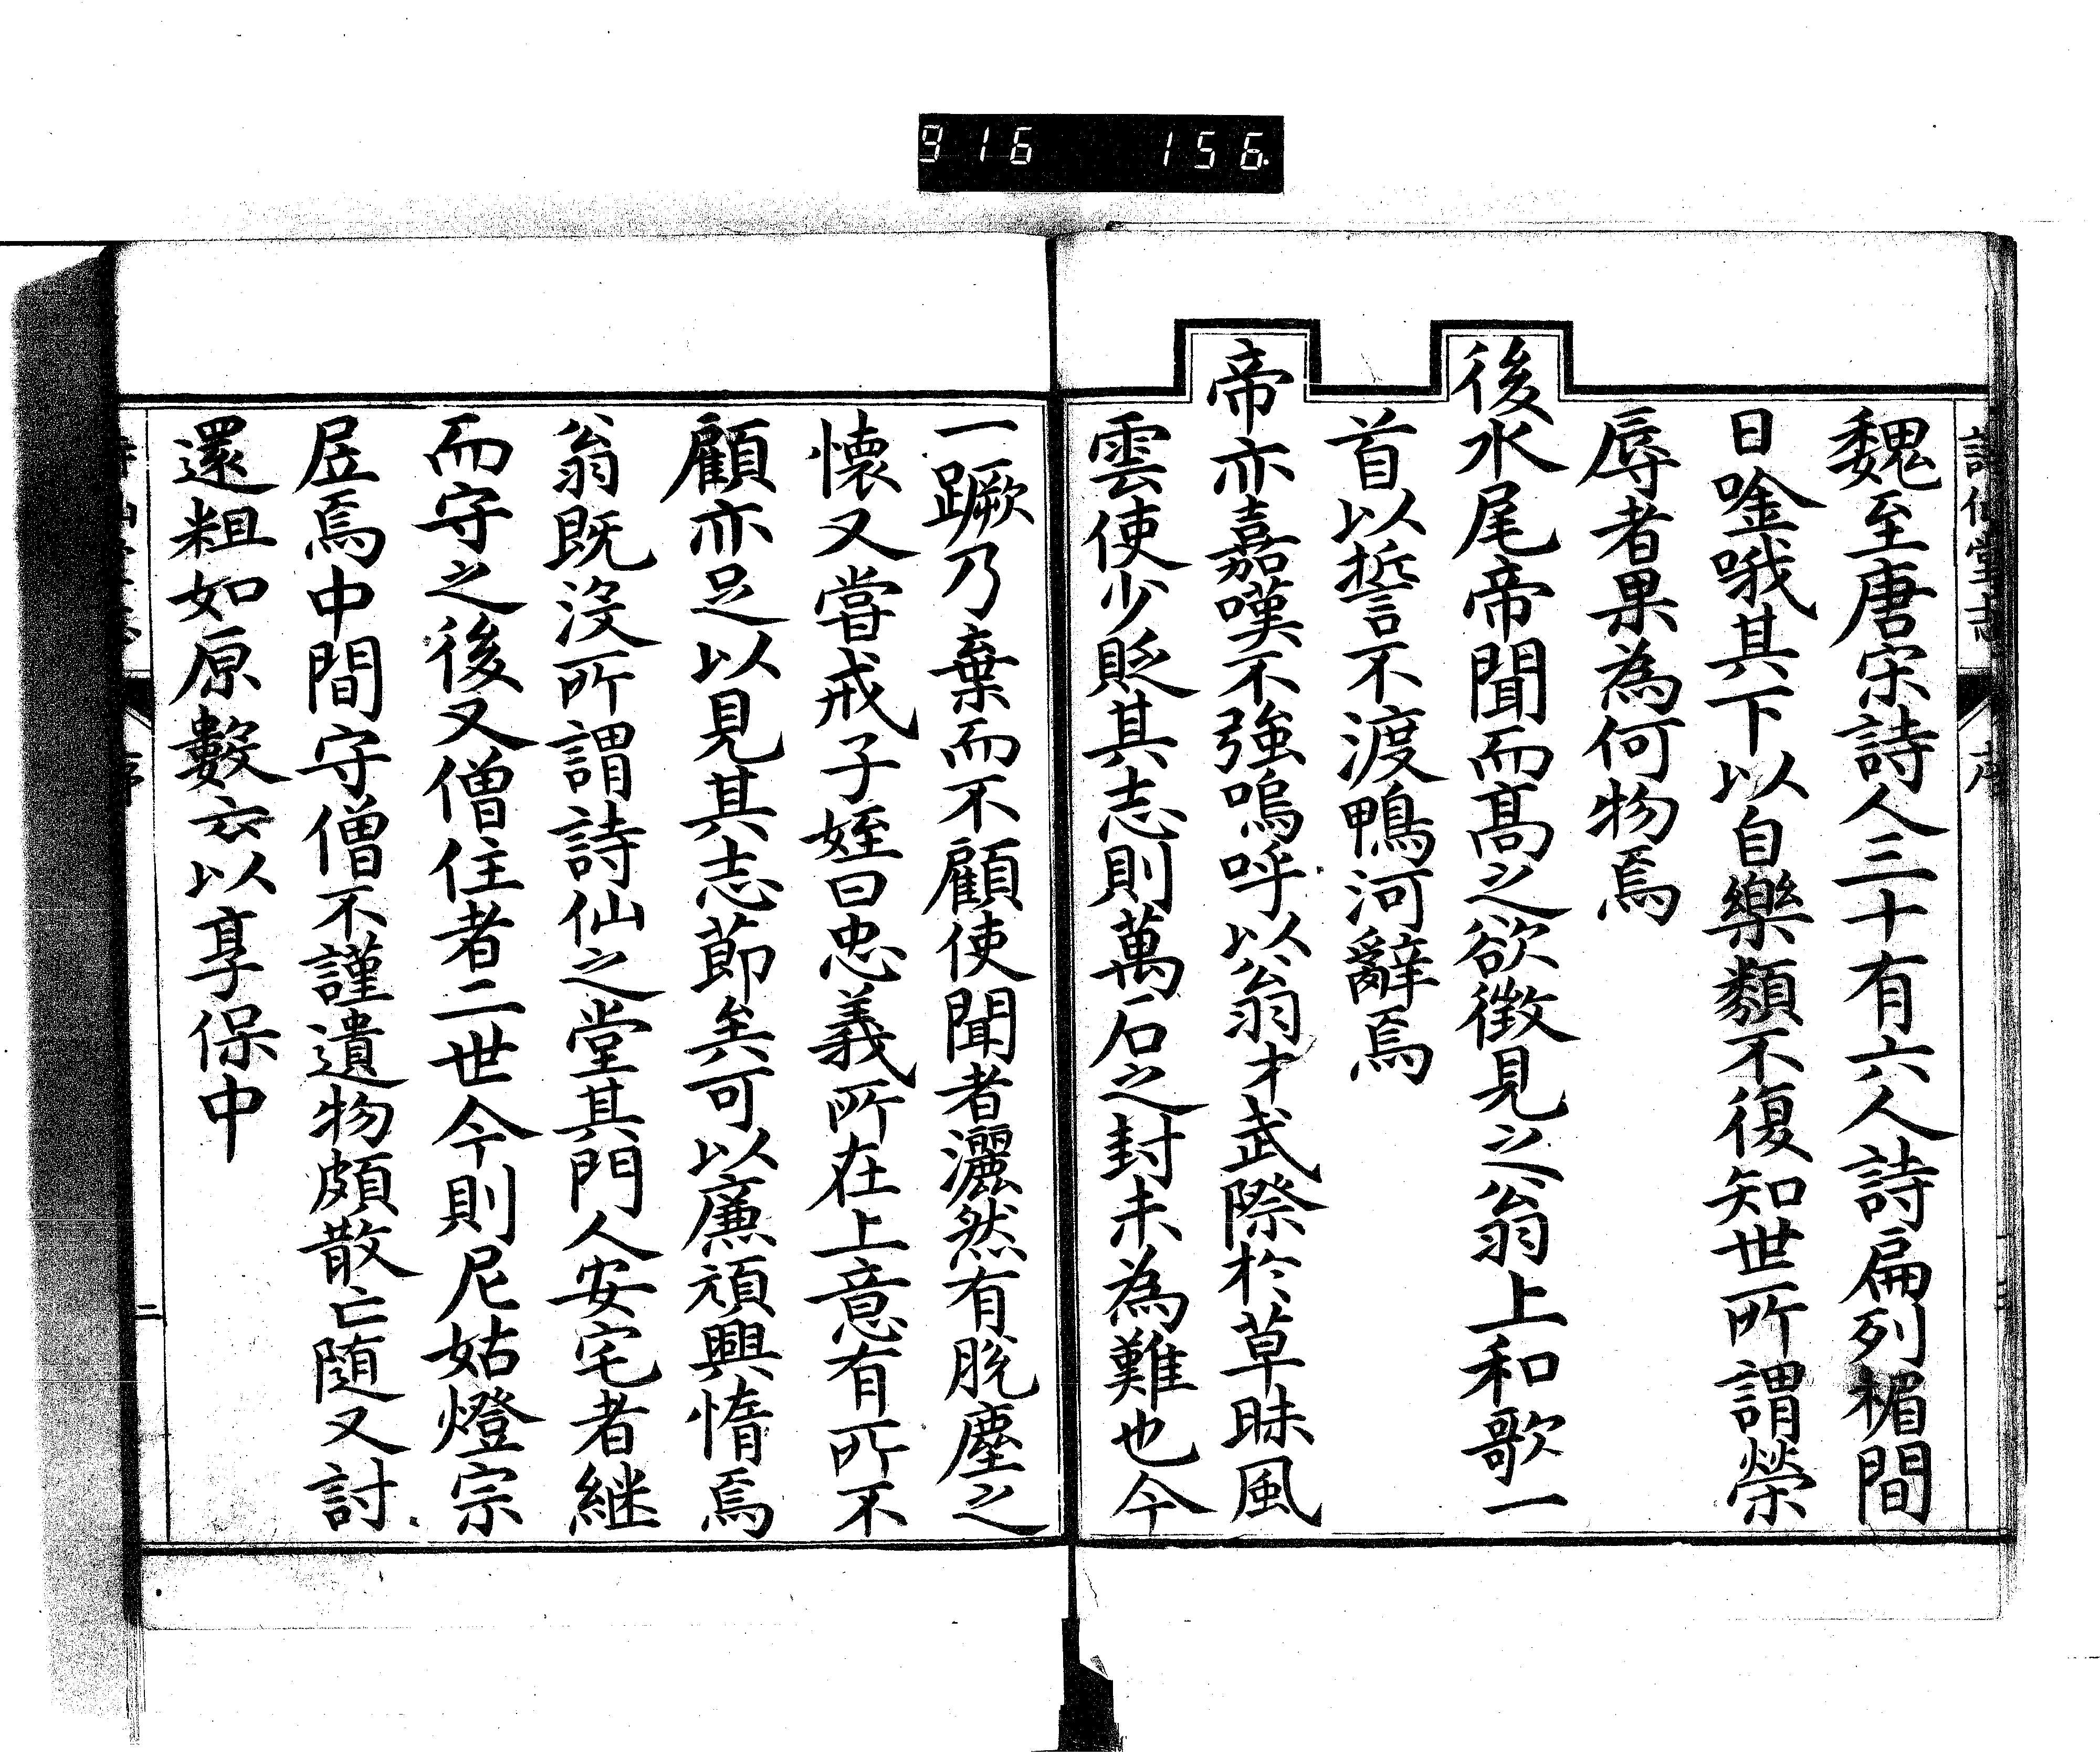 916 156
魏至唐宋詩人三十有六人詩扁列楣間
日唫哦其下以自樂類不復知世所謂榮
辱者果為何物焉
後水尾帝聞而高之欲徴見之翁上和歌一
首以誓不渡鴨河辭焉
帝亦嘉嘆不強嗚呼以翁才武際於草昧風
雲使少貶其志則萬石之封未為難也今
一蹶乃棄而不顧使聞者灑然有脫塵之
懐又嘗戒子姪曰忠義所在上意有所不
顧亦足以見其志節矣可以廉頑興惰焉
翁既沒所謂詩仙之堂其門人安宅者継
而守之後又僧住者二世今則尼姑燈宗
居焉中間守僧不謹遺物頗散亡随又討
還粗如原數云以享保中